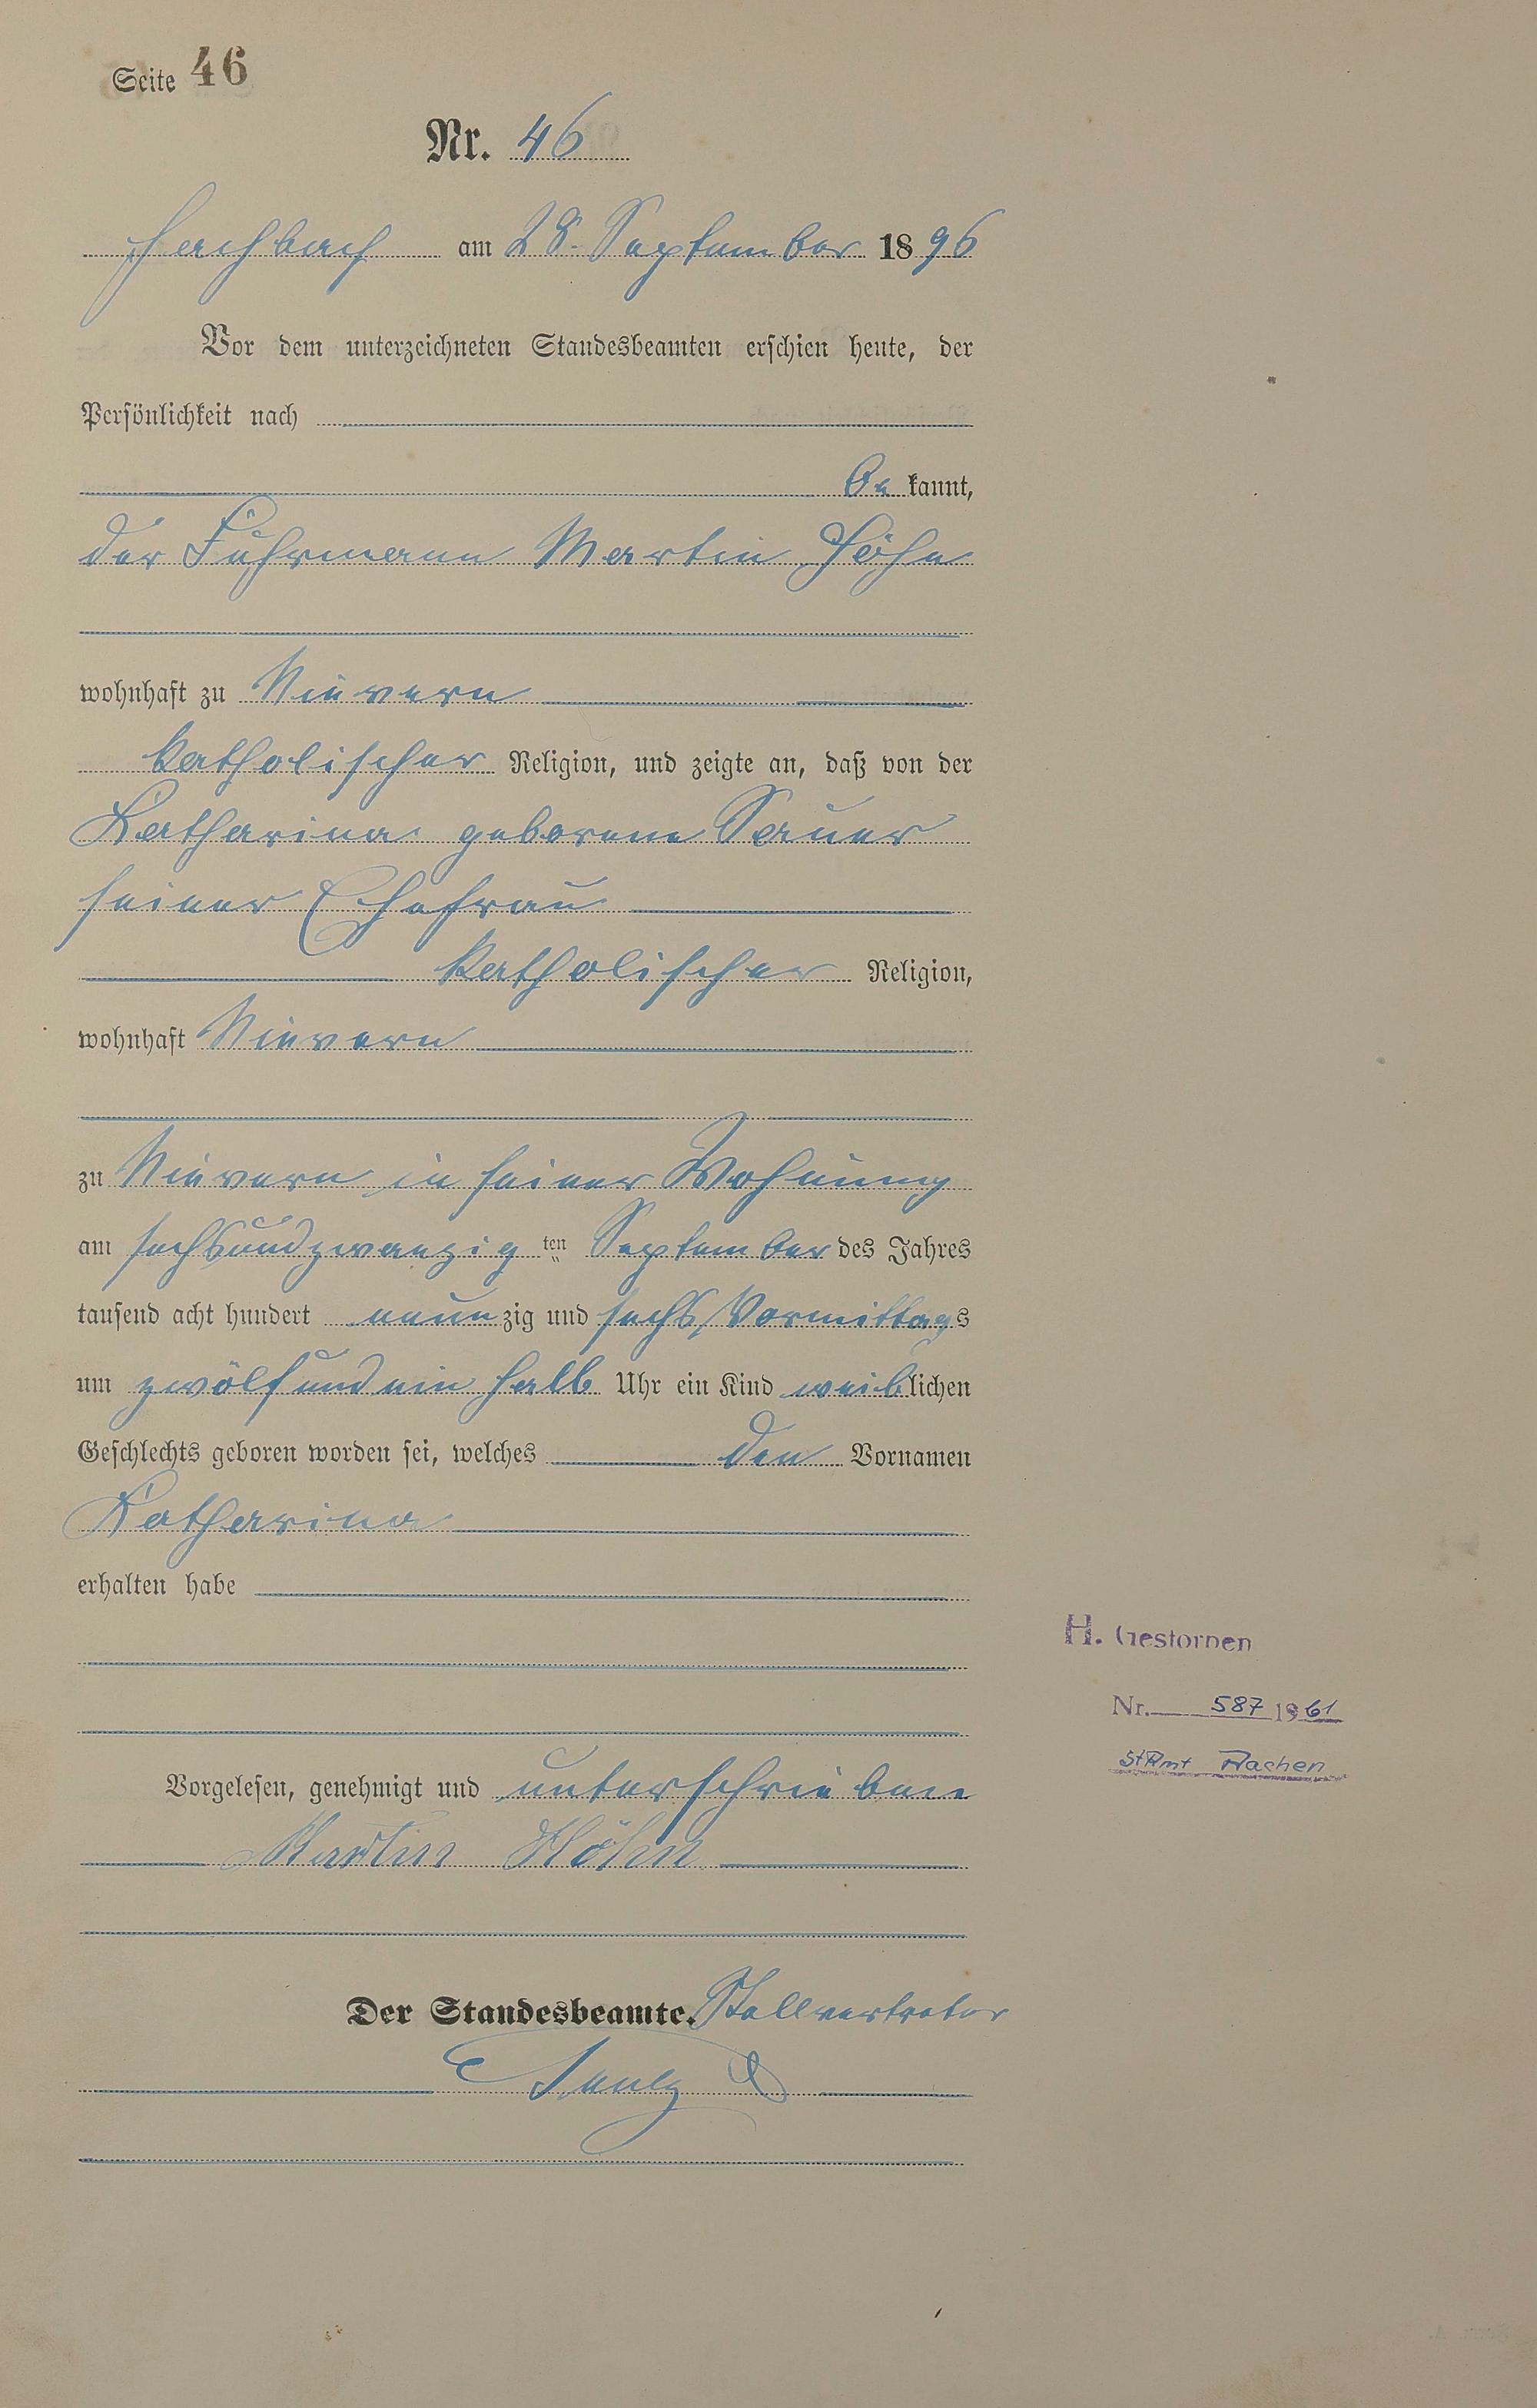 Seite 46
Nr. 46
Fachbach am 28. September 1896
Vor dem unterzeichneten Standesbeamten erschien heute, der
Persönlichkeit nach
bekannt,
der Fuhrmann Martin Höhn
wohnhaft zu Nievern
katholischer Religion, und zeigte an, daß von der
Katharina geborene Sauer
seiner Ehefrau
katholischer Religion,
wohnhaft Nievern
zu Nievern in seiner Wohnung
am sechsundzwanzig ten September des Jahres
tausend acht hundert neunzig und sechs Vormittags
um zwölf und ein halb Uhr ein Kind weiblichen
Geschlechts geboren worden sei, welches den Vornamen
Katharina
erhalten habe
H. Gestorben
Nr. 587 1961
StAmt Aachen
Vorgelesen, genehmigt und unterschrieben
Martin Höhn
Der Standesbeamte. Stellvertreter